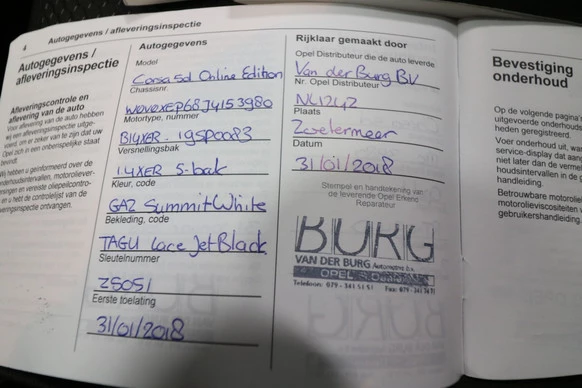 4
Autogegevens / afleveringsinspectie
Autogegevens /
afleveringsinspectie
Afleveringscontrole en
aflevering van de auto
Voor aflevering van de auto hebben
wij een afleveringsinspectie uitge-
voerd, om er zeker van te zijn dat uw
Opel zich in een onberispelijke staat
bevindt.
Wij hebben u geïnformeerd over de
onderhoudsintervallen, motoroliever-
versingen en vereiste oliepeilcontro-
les en u hebt de controlelijst van de
afleveringsinspectie ontvangen.
Autogegevens
Model
Corsa 5d Online Edition
Chassisnr.
W0V0XEP68J4153980
Motortype, nummer
B14XER. 19SP0083
Versnellingsbak
1.4XER 5-bak
Kleur, code
GAZ Summit White
Bekleding, code
TAGU Lace Jet Black
Sleutelnummer
Z5051
Eerste toelating
31/01/2018
Rijklaar gemaakt door
Opel Distributeur die de auto leverde
Van der Burg BV
Nr. Opel Distributeur
NL1242
Plaats
Zoetermeer
Datum
31/01/2018
Stempel en handtekening van
de leverende Opel Erkend
Reparateur
BURG
VAN DER BURG Automotive b.v.
OPEL
Telefoon: 079 - 341 51 51
Fax: 079 -
Bevestiging
onderhoud
Op de volgende pagina's
uitgevoerde onderhouds
heden geregistreerd.
Voer onderhoud uit, wan
service-display dat aan
niet later dan de vermel
houdsintervallen in de
handleiding.
Betrouwbare motorolies
motorolieviscositeiten v
gebruikershandleiding.